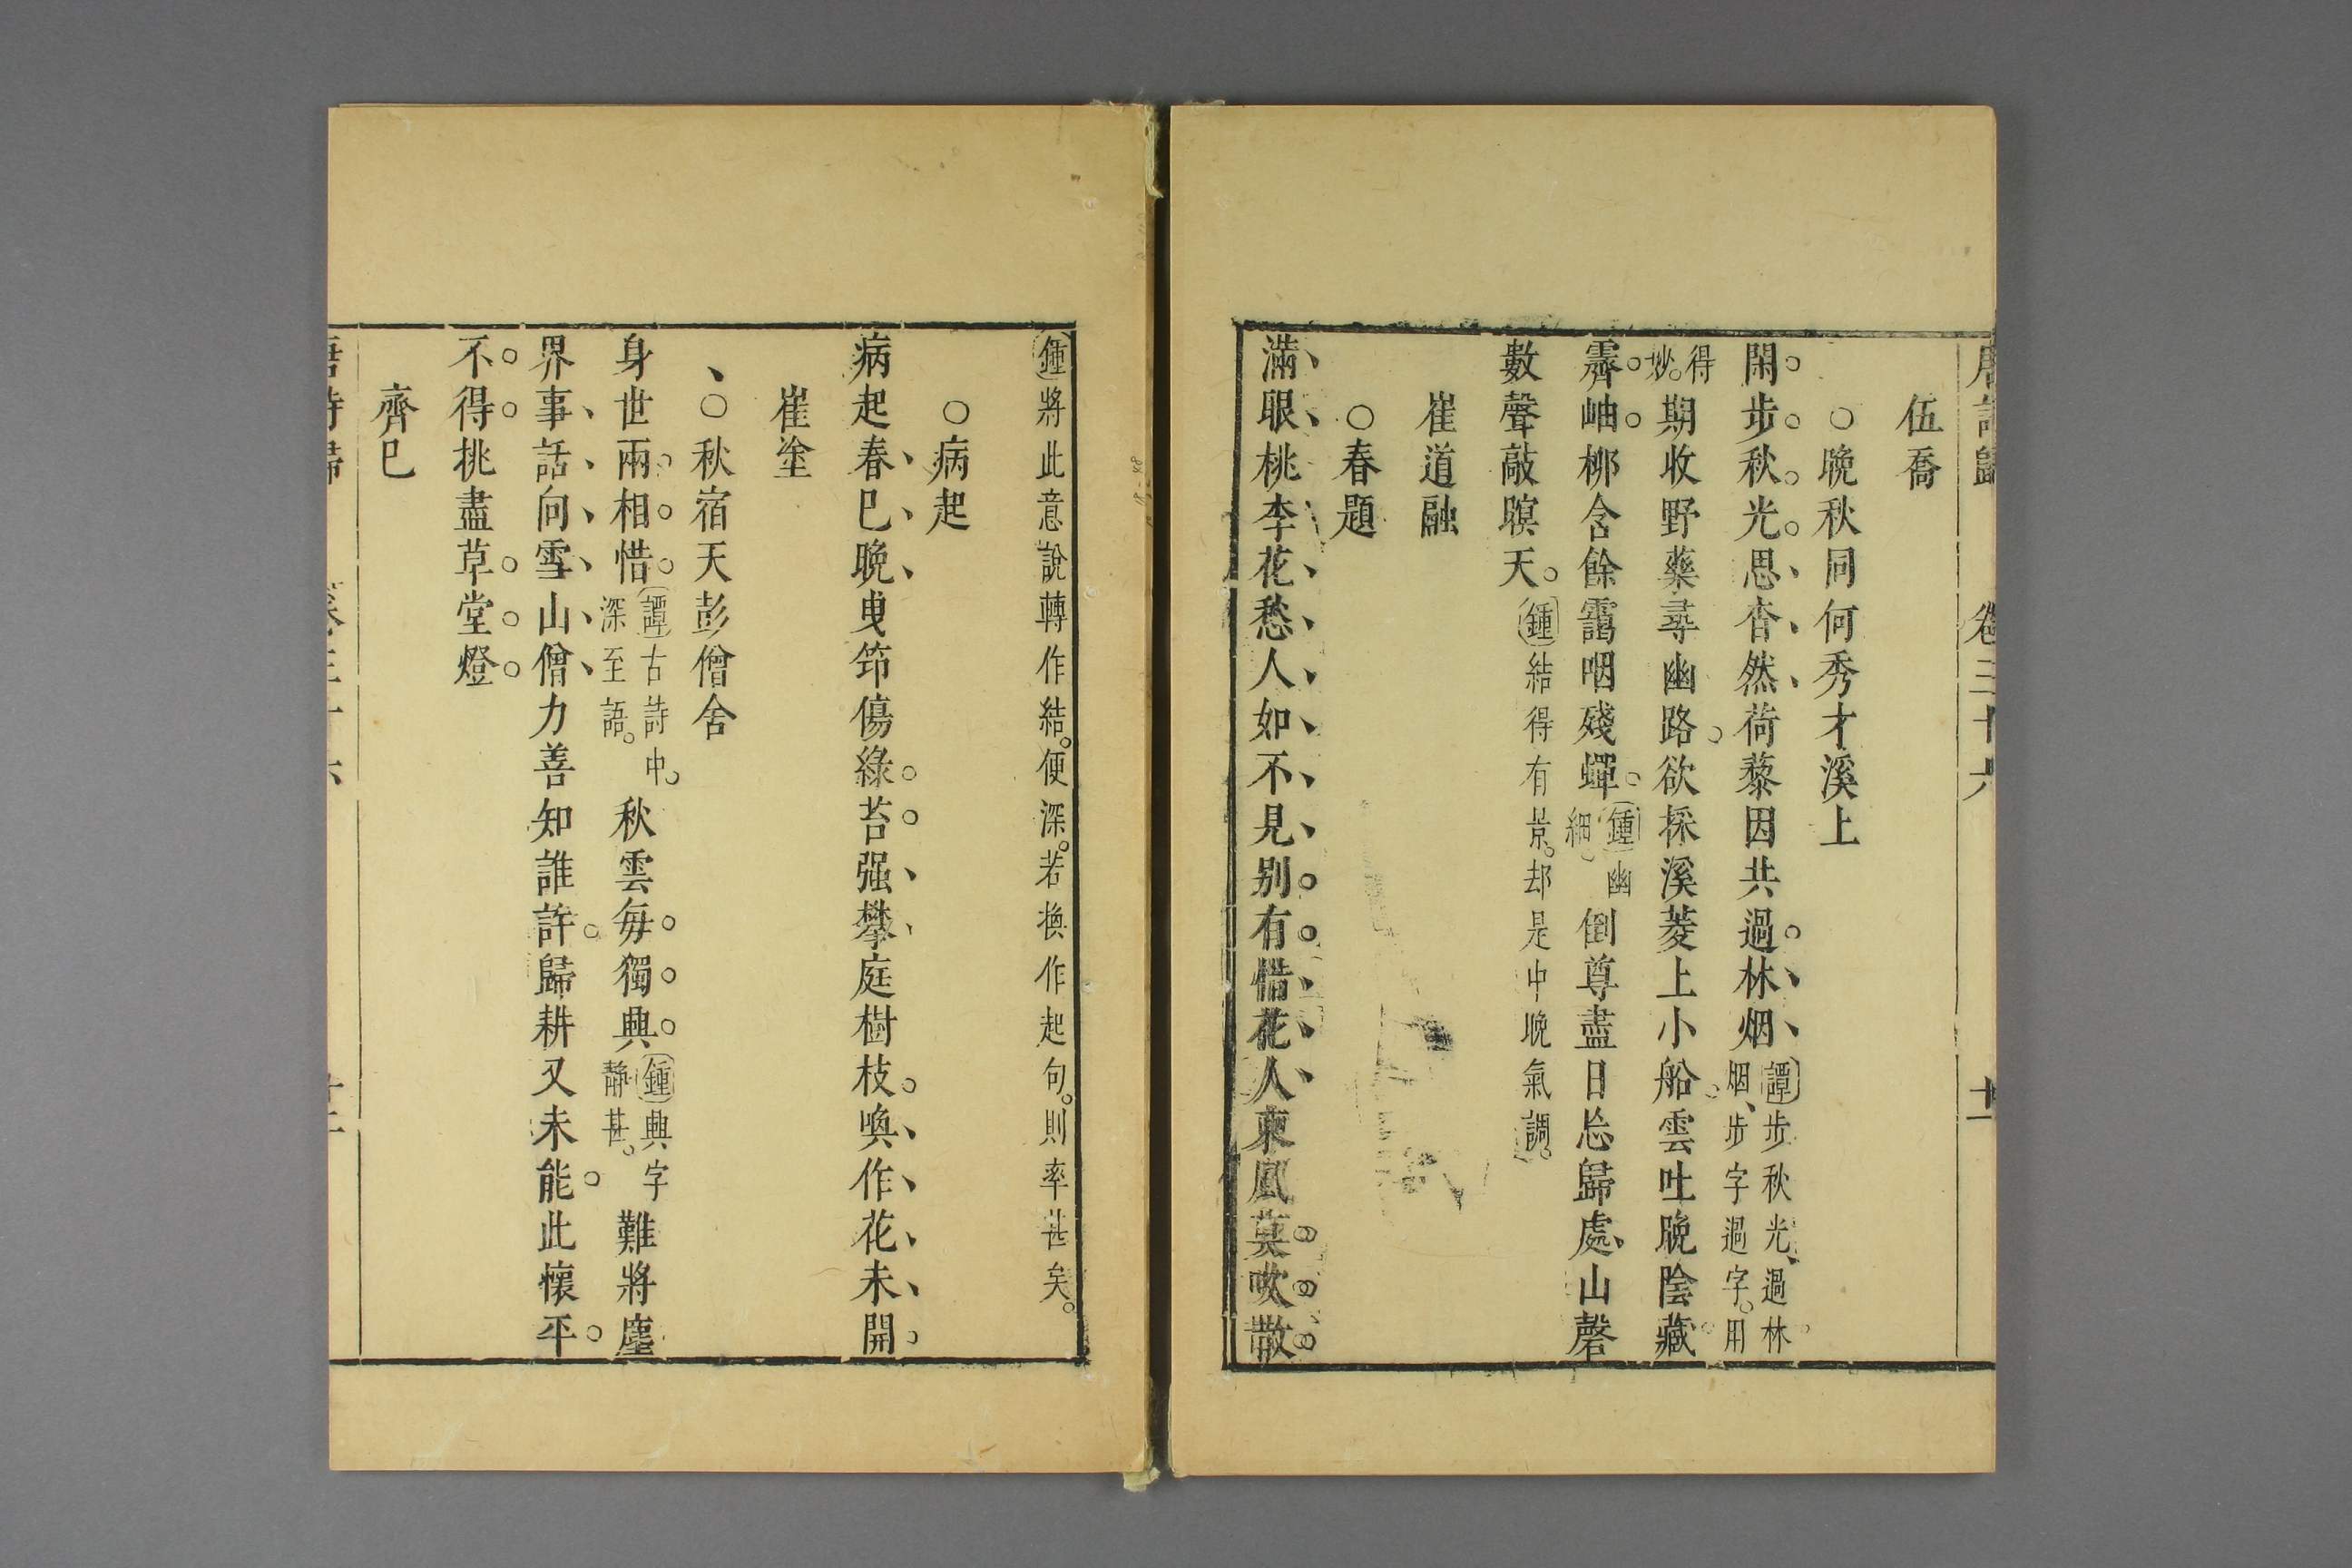 唐詩歸 卷三十六 十一
伍喬
○晚秋同何秀才溪上
閑步秋光思杳然荷藜因共過林烟譚步秋光、過林烟、步字過字。用
得妙。期收野藥尋幽路欲採溪菱上小船雲吐晚陰藏
霽岫柳含餘靄咽殘蟬鍾幽細。倒尊盡日忘歸處山磬
數聲敲暝天鍾結得有景。却是中晚氣調。
崔道融
○春題
滿眼桃李花愁人如不見别有惜花人東風莫吹散
鍾將此意說轉作結。便深。若換作起句。則率甚矣。
○病起
病起春已晚曳筇傷綠苔强攀庭樹枝喚作花未開
崔塗
、○秋宿天彭僧舍
身世兩相惜譚古詩中。深至語。秋雲每獨興鍾興字靜甚。難將塵
界事話向雪山僧力善知誰許歸耕又未能此懷平
不得挑盡草堂燈
齊已
唐詩歸 卷三十六 十二